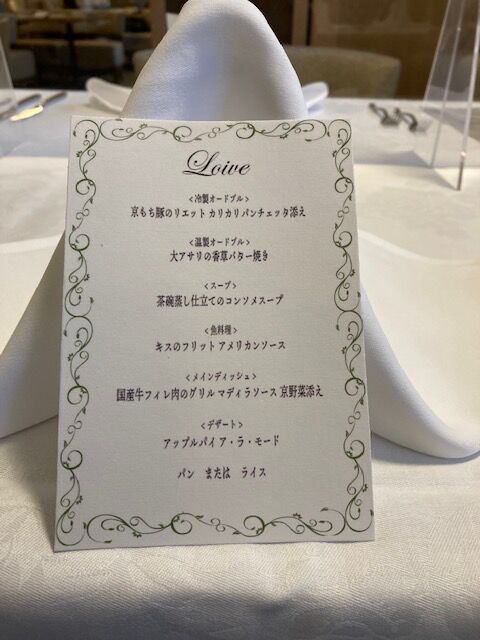 Loive
<冷製オードブル>
京もち豚のリエット カリカリパンチェッタ添え
<温製オードブル>
大アサリの香草バター焼き
<スープ>
茶碗蒸し仕立てのコンソメスープ
<魚料理>
キスのフリット アメリカンソース
<メインディッシュ>
国産牛フィレ肉のグリル マディラソース 京野菜添え
<デザート>
アップルパイ ア・ラ・モード
パン または ライス